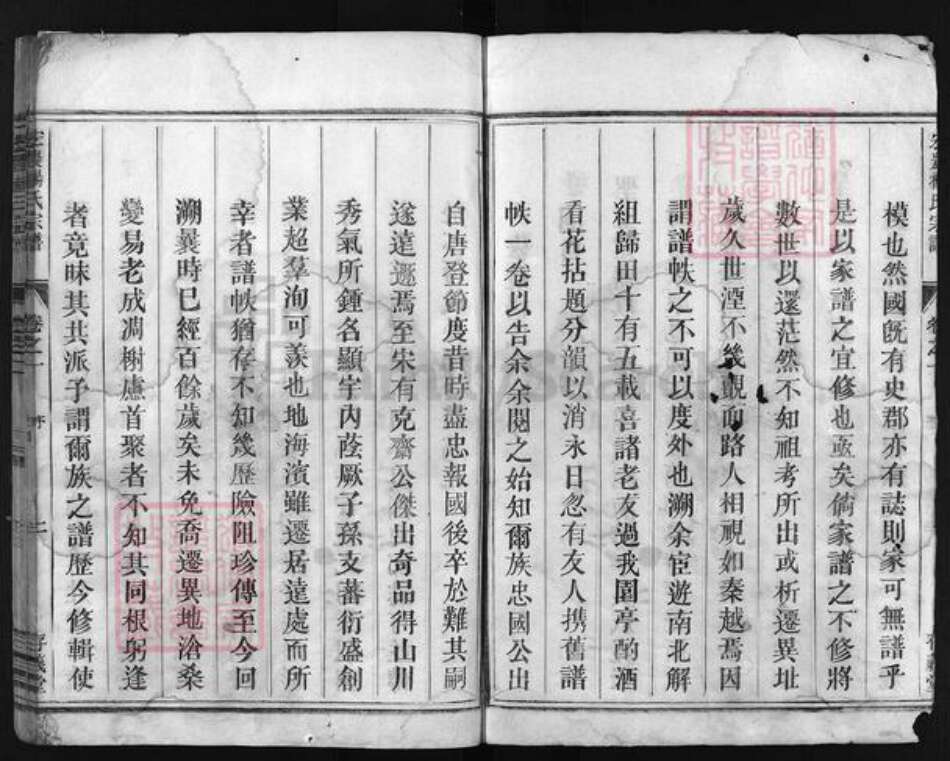 模也然國旣有史郡亦有誌則家可無譜乎
是以家譜之宜修也亟矣倘家譜之不修將
數世以還茫然不知祖考所出或析遷異址
歲久世湮不幾覿面路人相視如秦越焉因
謂譜帙之不可以度外也溯余宦遊南北解
組歸田十有五載喜諸老友過我園亭酌酒
看花拈題分韻以消永日忽有友人携舊譜
帙一卷以告余余閱之始知爾族忠國公出
自唐登節度昔時盡忠報國後卒於難其嗣
遂遠遯焉至宋有克齋公傑出奇品得山川
秀氣所鍾名顯宇內蔭厥子孫支蕃衍盛創
業超羣洵可羨也地海濱雖遷居遠處而所
幸者譜帙猶存不知幾歷險阻珍傳至今回
溯曩時巳經百餘歲矣未免喬遷異地滄桑
變易老成凋榭慮首聚者不知其同根躬逢
者竟昧其共派予謂爾族之譜歷今修輯使
氏宗譜
卷之一
序
二
存義堂